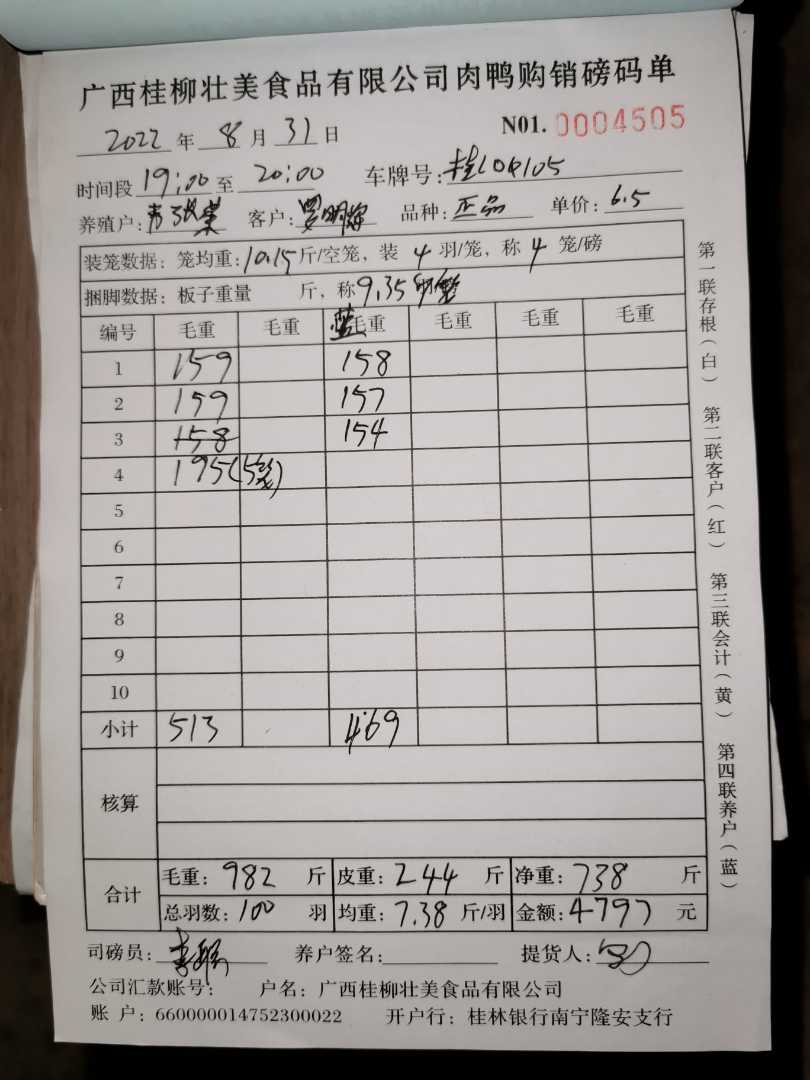 广西桂柳壮美食品有限公司肉鸭购销磅码单
2022 年 8 月 31 日 N01. 0004505
时间段 19:00 至 20:00 车牌号:
养殖户: 客户: 品种: 正品 单价: 6.5
装笼数据: 笼均重: 10.15 斤/空笼, 装 4 羽/笼, 称 4 笼/磅
捆脚数据: 板子重量 斤, 称 9.35
编号 毛重 毛重 蓝 毛重 毛重 毛重 毛重
1 159 158
2 159 157
3 158 154
4 195(5笼)
5
6
7
8
9
10
小计 513 469
核算
合计 毛重: 982 斤 皮重: 244 斤 净重: 738 斤
总羽数: 100 羽 均重: 7.38 斤/羽 金额: 4797 元
司磅员: 养户签名: 提货人:
公司汇款账号: 户名: 广西桂柳壮美食品有限公司
账 户: 660000014752300022 开户行: 桂林银行南宁隆安支行
第一联存根(白) 第二联客户(红) 第三联会计(黄) 第四联养户(蓝)